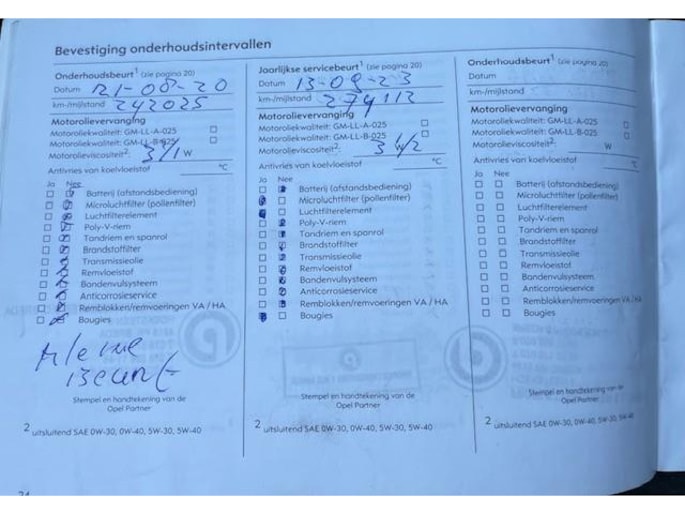 Bevestiging onderhoudsintervallen
Onderhoudsbeurt¹ (zie pagina 20)
Datum 21-08-20
km-/mijlstand 242025
Motorolievervanging
Motoroliekwaliteit: GM-LL-A-025
Motoroliekwaliteit: GM-LL-B-025
Motorolieviscositeit²: 3/1 W
Antivries van koelvloeistof °C
Ja Nee
Batterij (afstandsbediening)
Microluchtfilter (pollenfilter)
Luchtfilterelement
Poly-V-riem
Tandriem en spanrol
Brandstoffilter
Transmissieolie
Remvloeistof
Bandenvulsysteem
Anticorrosieservice
Remblokken/remvoeringen VA / HA
Bougies
Kleine
Beurt
Stempel en handtekening van de
Opel Partner
2 uitsluitend SAE 0W-30, 0W-40, 5W-30, 5W-40
Jaarlijkse servicebeurt¹ (zie pagina 20)
Datum 13-09-23
km-/mijlstand 274112
Motorolievervanging
Motoroliekwaliteit: GM-LL-A-025
Motoroliekwaliteit: GM-LL-B-025
Motorolieviscositeit²: 3 W/2
Antivries van koelvloeistof °C
Ja Nee
Batterij (afstandsbediening)
Microluchtfilter (pollenfilter)
Luchtfilterelement
Poly-V-riem
Tandriem en spanrol
Brandstoffilter
Transmissieolie
Remvloeistof
Bandenvulsysteem
Anticorrosieservice
Remblokken/remvoeringen VA / HA
Bougies
Stempel en handtekening van de
Opel Partner
2 uitsluitend SAE 0W-30, 0W-40, 5W-30, 5W-40
Onderhoudsbeurt¹ (zie pagina 20)
Datum
km-/mijlstand
Motorolievervanging
Motoroliekwaliteit: GM-LL-A-025
Motoroliekwaliteit: GM-LL-B-025
Motorolieviscositeit²: W
Antivries van koelvloeistof °C
Ja Nee
Batterij (afstandsbediening)
Microluchtfilter (pollenfilter)
Luchtfilterelement
Poly-V-riem
Tandriem en spanrol
Brandstoffilter
Transmissieolie
Remvloeistof
Bandenvulsysteem
Anticorrosieservice
Remblokken/remvoeringen VA / HA
Bougies
Stempel en handtekening van de
Opel Partner
2 uitsluitend SAE 0W-30, 0W-40, 5W-30, 5W-40